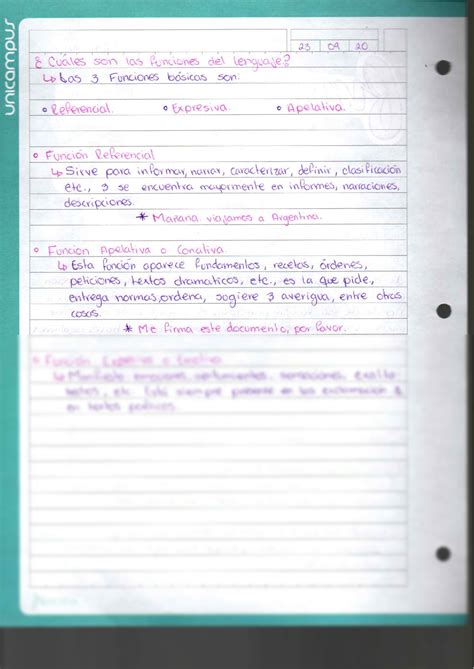 unicampus
23 09 20
¿Cuáles son las funciones del lenguaje?
↳ Las 3 Funciones básicas son:
• Referencial. • Expresiva. • Apelativa.
• Función Referencial
↳ Sirve para informar, narrar, caracterizar, definir, clasificación
etc., 3 se encuentra mayormente en informes, narraciones,
descripciones.
* Mañana viajamos a Argentina.
• Función Apelativa o Conativa
↳ Esta función aparece fundamentos, recetas, órdenes,
peticiones, textos dramaticos, etc., es la que pide,
entrega normas, ordena, sugiere 3 averigua, entre otras
cosas.
* Me firma este documento, por favor.
• Función Expresiva o Emotiva
↳ Manifiesta emociones, sentimientos, sensaciones,
etc. Está siempre presente en las
en textos poéticos.